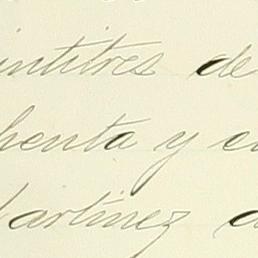 intitres de
henta y c
Martinez d